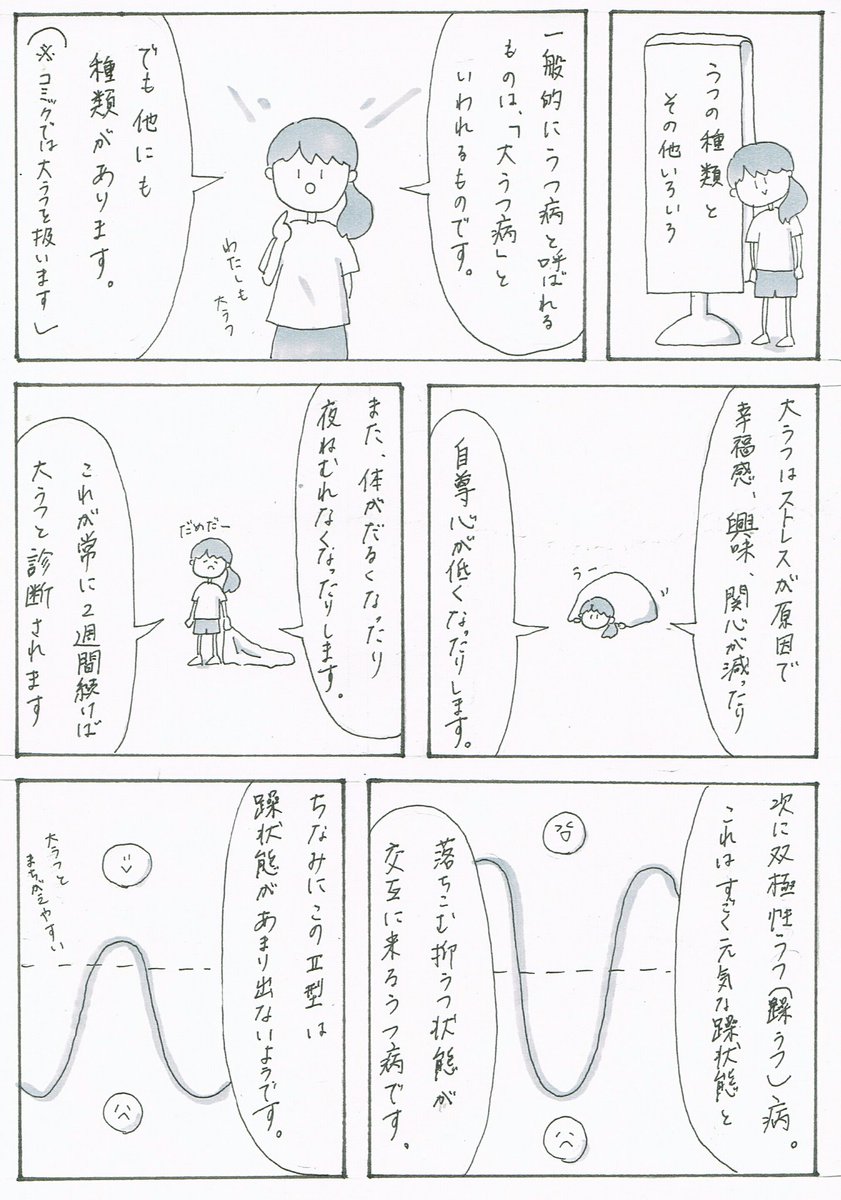 うつの種類と
その他いろいろ
一般的にうつ病と呼ばれる
ものは、「大うつ病」と
いわれるものです。
わたしも
大うつ
でも他にも
種類があります。
(※コミックでは大うつを扱います)
大うつはストレスが原因で
幸福感、興味、関心が減ったり
うー
自尊心が低くなったりします。
また、体がだるくなったり
夜ねむれなくなったりします。
だめだー
これが常に2週間続けば
大うつと診断されます
次に双極性うつ(躁うつ)病。
これはすごく元気な躁状態と
落ちこむ抑うつ状態が
交互に来るうつ病です。
ちなみにこのⅡ型は
躁状態があまり出ないようです。
大うつと
まちがえやすい